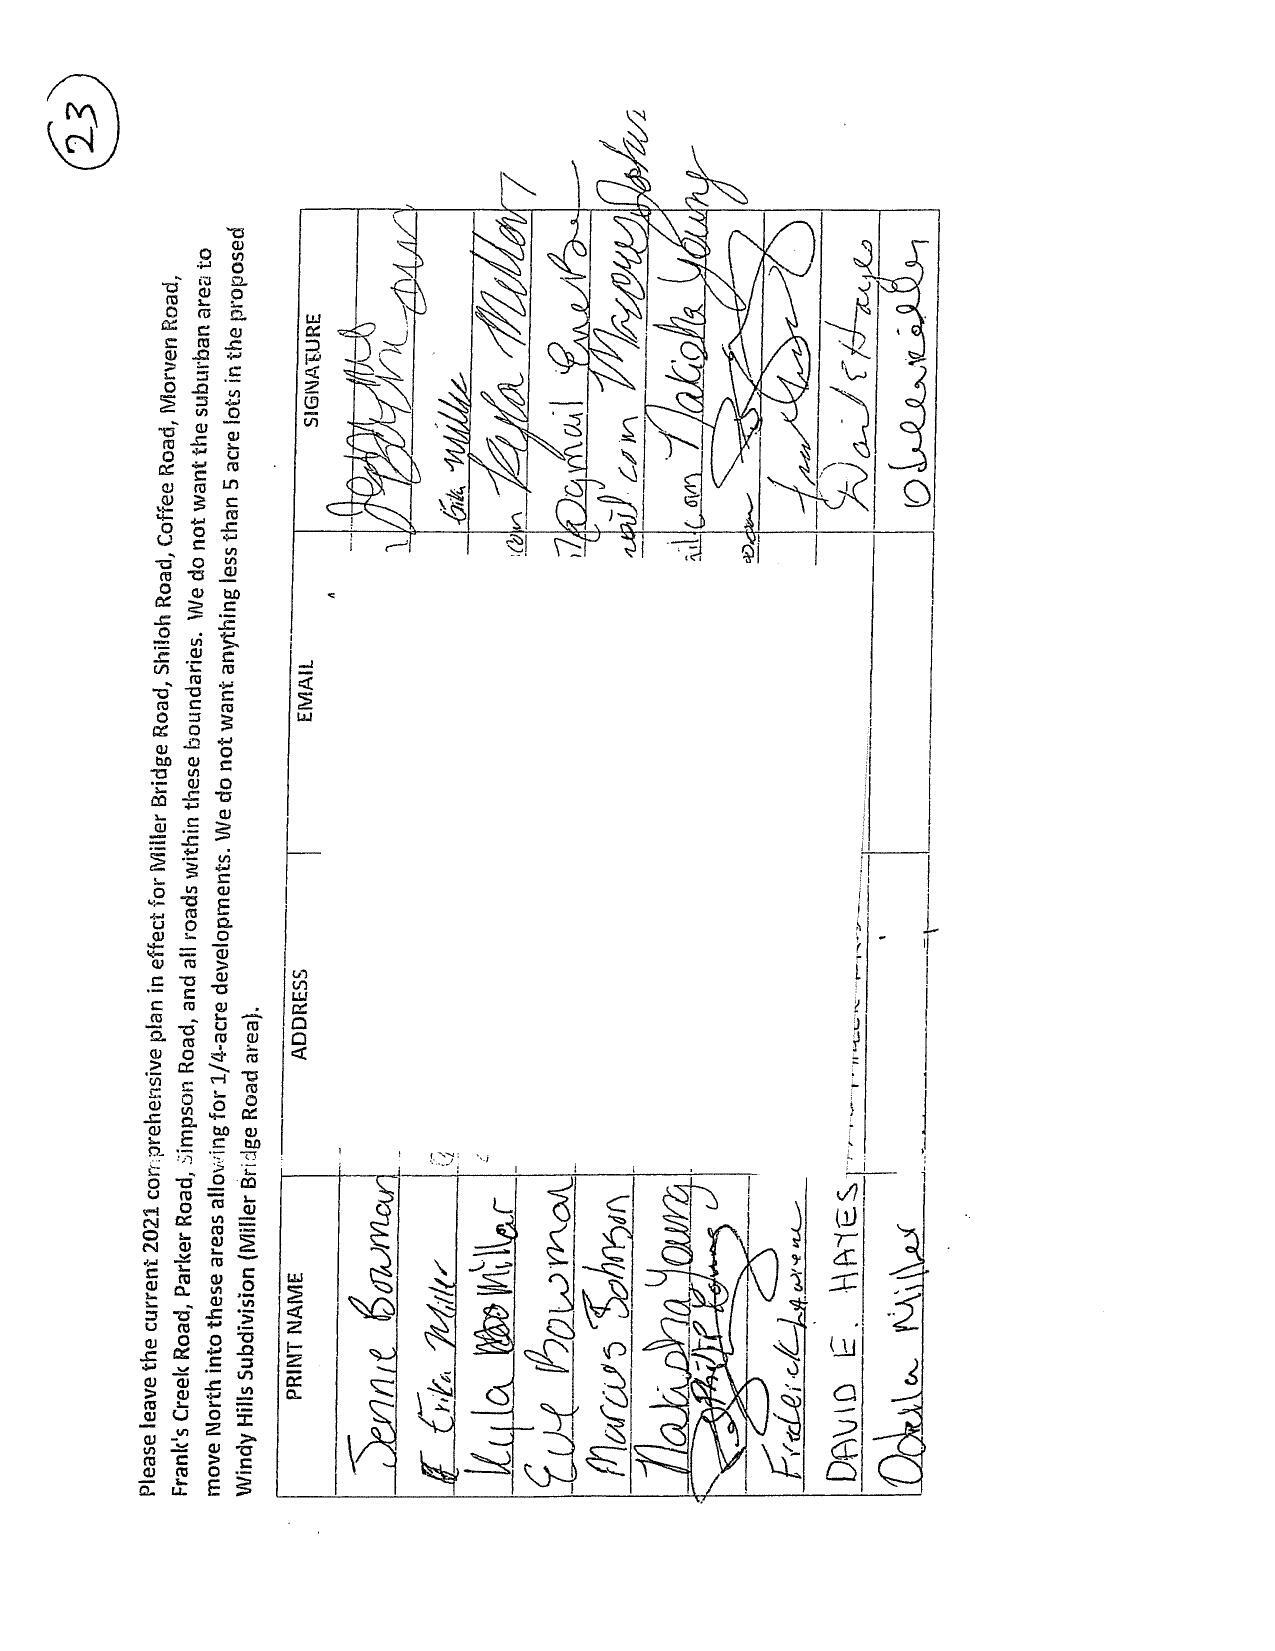 23
Please leave the current 2021 comprehensive plan in effect for Miller Bridge Road, Shiloh Road, Coffee Road, Morven Road,
Frank's Creek Road, Parker Road, Simpson Road, and all roads within these boundaries. We do not want the suburban area to
move North into these areas allowing for 1/4-acre developments. We do not want anything less than 5 acre lots in the proposed
Windy Hills Subdivision (Miller Bridge Road area).
PRINT NAME ADDRESS EMAIL SIGNATURE
Jennie Bowman
Erika Miller Erika Miller
Kyla Millar com Kyla Millar
Eve Bowman @gmail
Marcus Johnson ail.com Marcus Johns
Nakisha Young ail.com Nakisha Young
Philip Young
Frederick Lawrence
DAVID E. HAYES David E Hayes
Odella Miller Odella Miller